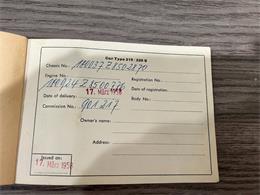 Car Type 219 / 220 S
Chassis No.: 180037Z8502870
Engine No.: 180924Z8500776 Registration No.:
Date of delivery: 17. März 1958 Date of registration:
Commission No.: 901217 Body No.:
Owner's name:
Address:
Issued on:
17. März 1958